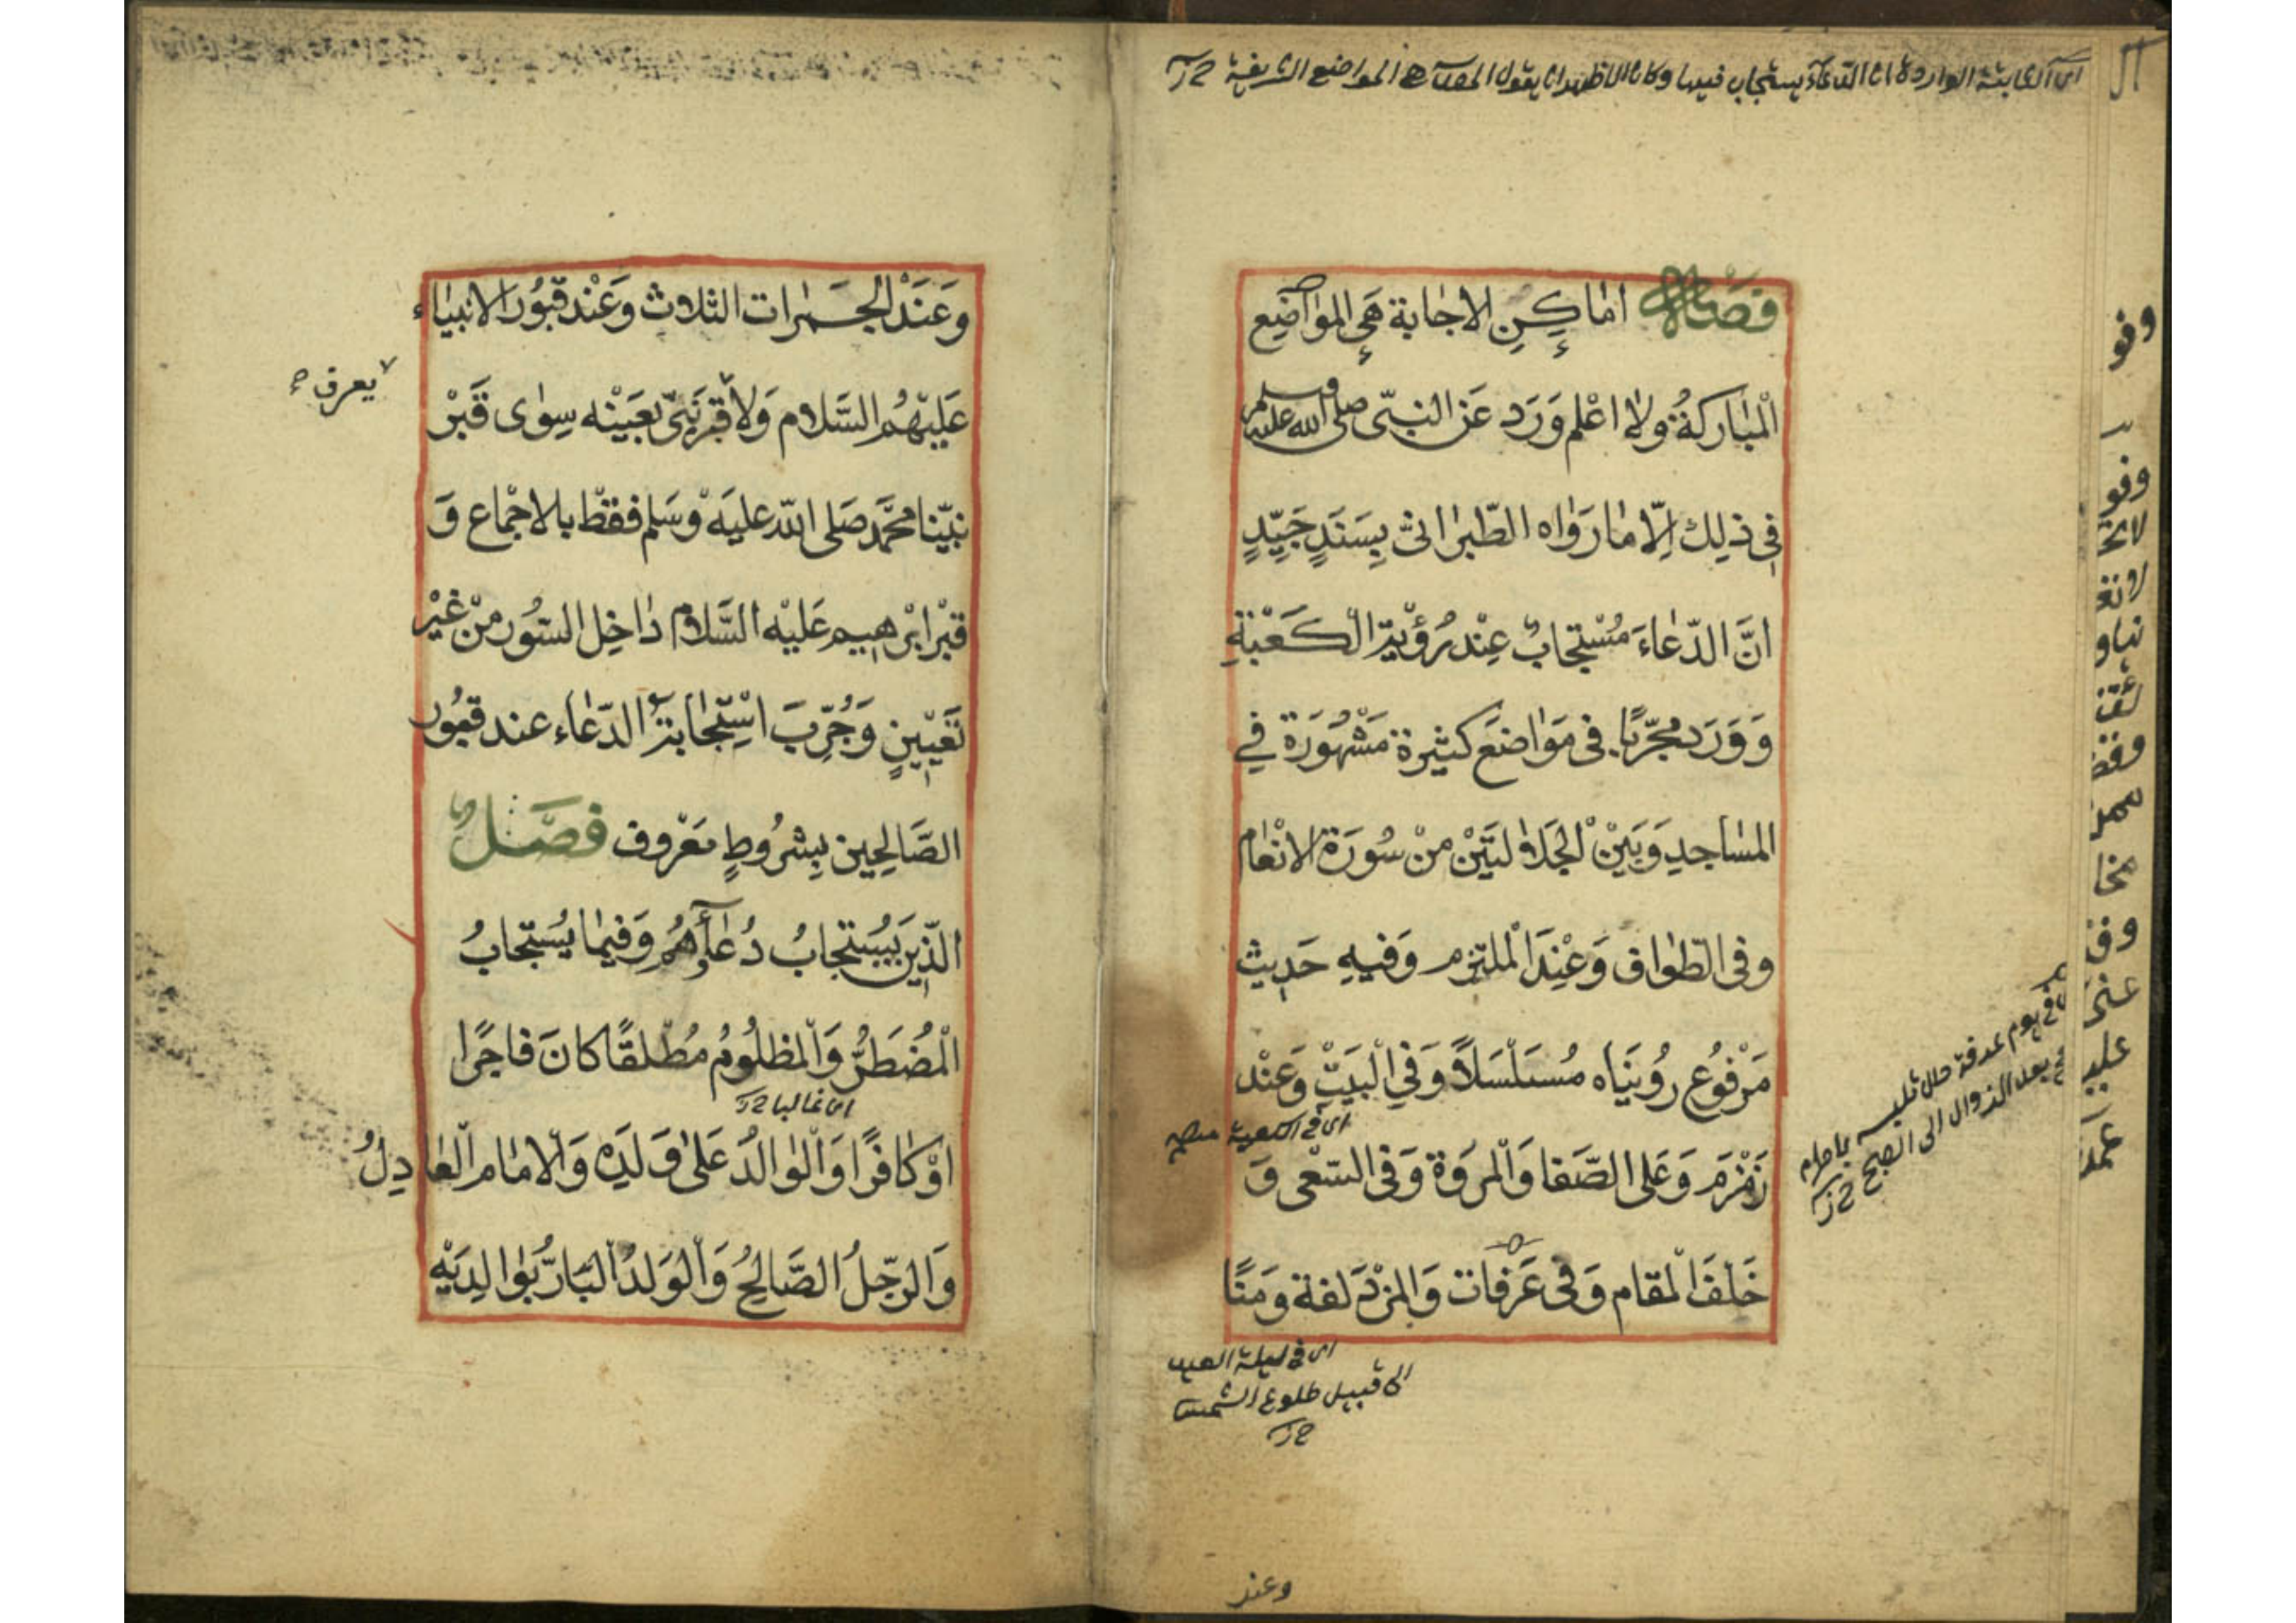 اى الثابتة الواردة ان الدعاء يستجاب فيها وكان الاظهر ان يقول المص هى المواضع الشريفة
فصل اماكن الاجابة هى المواضع
المباركة ولا اعلم ورد عن النبى صلى الله عليه وسلم
فى ذلك الا ما رواه الطبرانى بسند جيد
ان الدعاء مستجاب عند رؤية الكعبة
وورد مجربا فى مواضع كثيرة مشهورة في
المساجد وبين الجلالتين من سورة الانعام
وفى الطواف وعند الملتزم وفيه حديث
مرفوع رويناه مسلسلا وفي البيت وعند
اى فى الكعبة
زمزم وعلى الصفا والمروة وفى السعى و
خلف المقام وفى عرفات والمزدلفة ومنا
فى يوم عرفة حال تلبسه باحرام
بعد الزوال الى الصبح
اى فى ليلة العيد
الى قبيل طلوع الشمس
وعند
وعند الجمرات الثلاث وعند قبور الانبياء
عليهم السلام ولا قبر نبى بعينه سوى قبر
يعرف
نبينا محمد صلى الله عليه وسلم فقط بالاجماع و
قبر ابرهيم عليه السلام داخل السور من غير
تعيين وجرب استجابة الدعاء عند قبور
الصالحين بشروط معروف فصل
الذين يستجاب دعاؤهم وفيما يستجاب
المضطر والمظلوم مطلقا كان فاجرا
اى غالبا
او كافرا والوالد على ولده والامام العادل
والرجل الصالح والولد البار بوالديه